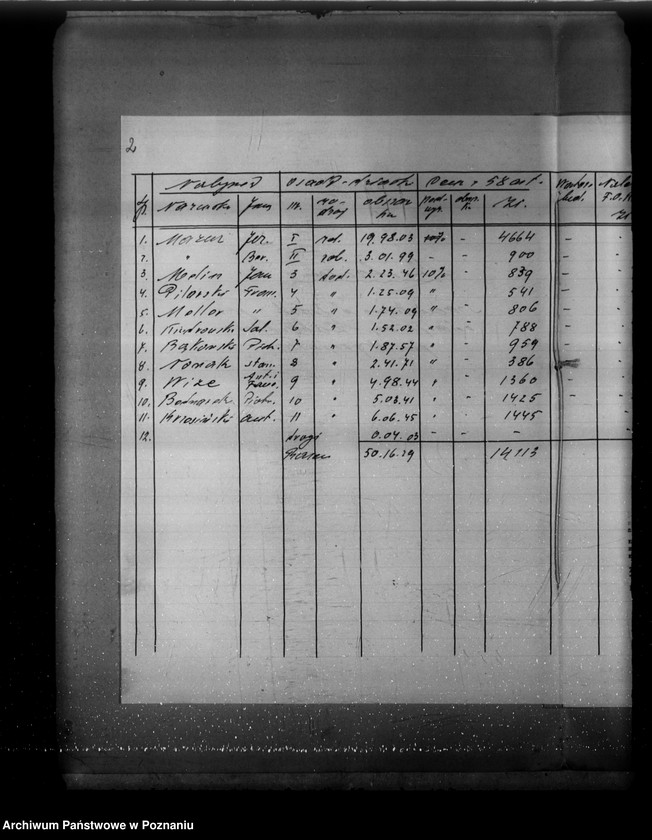 2
Nabywca osada - działk Cena z 58 art.
L.p. Nazwisko Imię nr. ro-dzaj obszar ha pod-wyż. zł.
1. Mazur Józ. I rol. 19.98.03 10% - 4664 -
2. " Bor. II rol. 3.01.99 - - 900 -
3. Molin Jan 3 dod. 2.23.46 10% - 839 -
4. Pilarski Fran. 4 " 1.25.09 " - 541 -
5. Mollor " 5 " 1.74.09 " - 806 -
6. 6 " 1.52.02 " - 788 -
7. Bąkowski Piotr 7 " 1.87.57 " - 959 -
8. Nowak Stan. 8 " 2.41.71 " - 386
9. Wize Ant. i 9 " 4.98.44 " - 1360 -
10. Bednarek Piotr 10 " 5.03.41 " - 1425 -
11. Krzosiński Ant. 11 " 6.06.45 " - 1445
12. drogi 0.04.03 - - -
Razem 50.16.29 14113
Archiwum Państwowe w Poznaniu